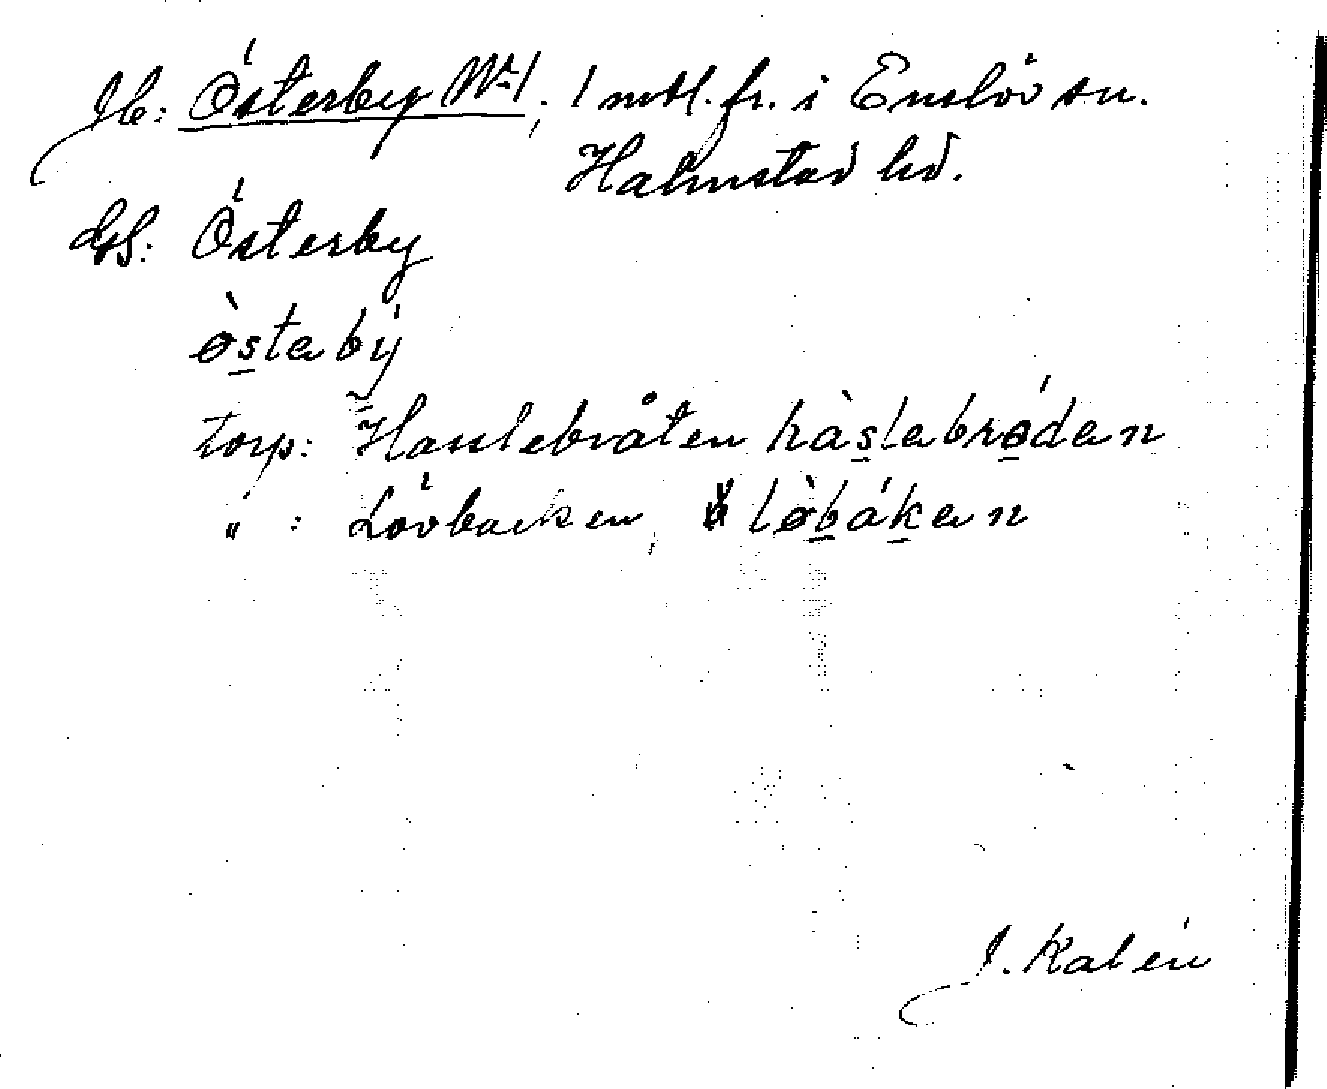 Jb: Österby Nr 1, 1 mtl. fr. i Enslöv sn.
Halmstad hd.
GS: Österby
ø̀stabý
torp: Hasslebråten hàslabrǿdan
" : Lövbacken, lø̀bákan
J. Kalén